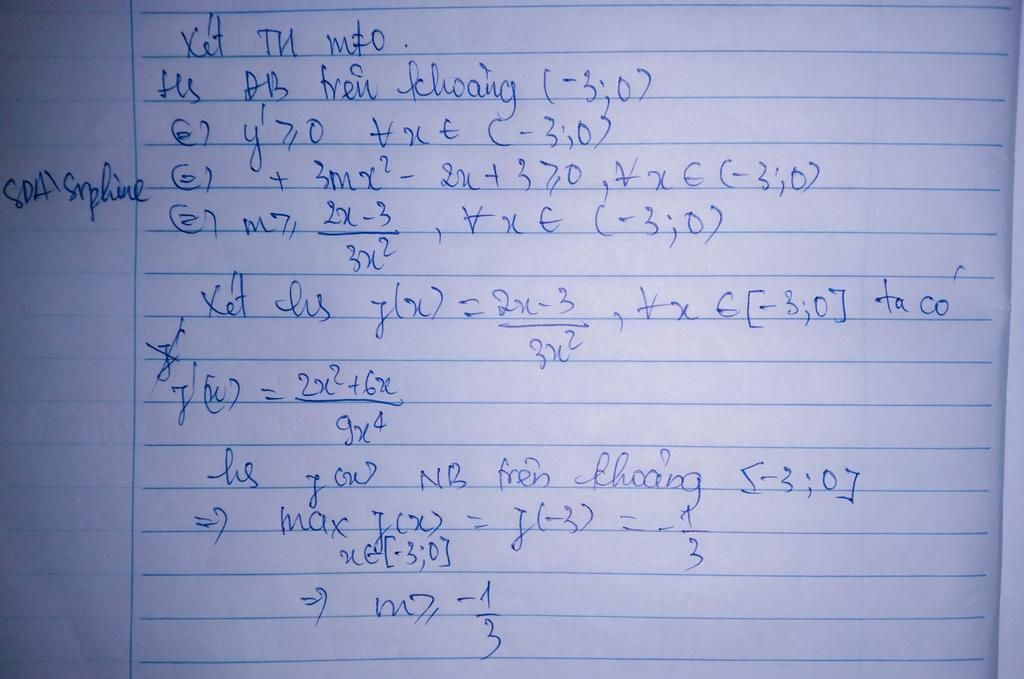 Xét TH m≠0.
Hs ĐB trên khoảng (-3;0)
⇔ y' ≥ 0 ∀x ∈ (-3;0)
⇔ + 3mx² - 2x + 3 ≥ 0, ∀x ∈ (-3;0)
⇔ m ≥ (2x-3)/(3x²), ∀x ∈ (-3;0)
Xét hs g(x) = (2x-3)/(3x²), ∀x ∈ [-3;0] ta có
g'(x) = (2x²+6x)/(9x⁴)
hs g(x) NB trên khoảng [-3;0]
⇒ max g(x) = g(-3) = -1/3
x∈[-3;0]
⇒ m ≥ -1/3